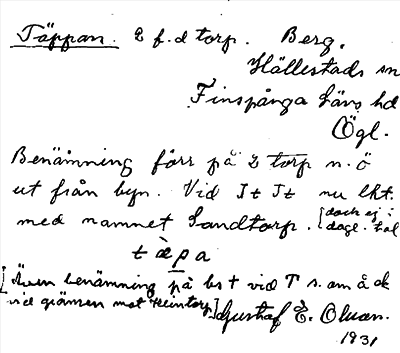 Täppan. 2 f.d torp. Berg.
Hällestads sn
Finspånga läns hd
Ögl.
Benämning förr på 2 torp n.ö
ut från byn. Vid It Jt nu lht.
med namnet Sandtorp. [dock ej i
dagl. tal
t æ̀ p a
[Även benämning på bst vid T s.om å ck
vid gränsen mot Heintorp]
Gustaf E. Olsson.
1931